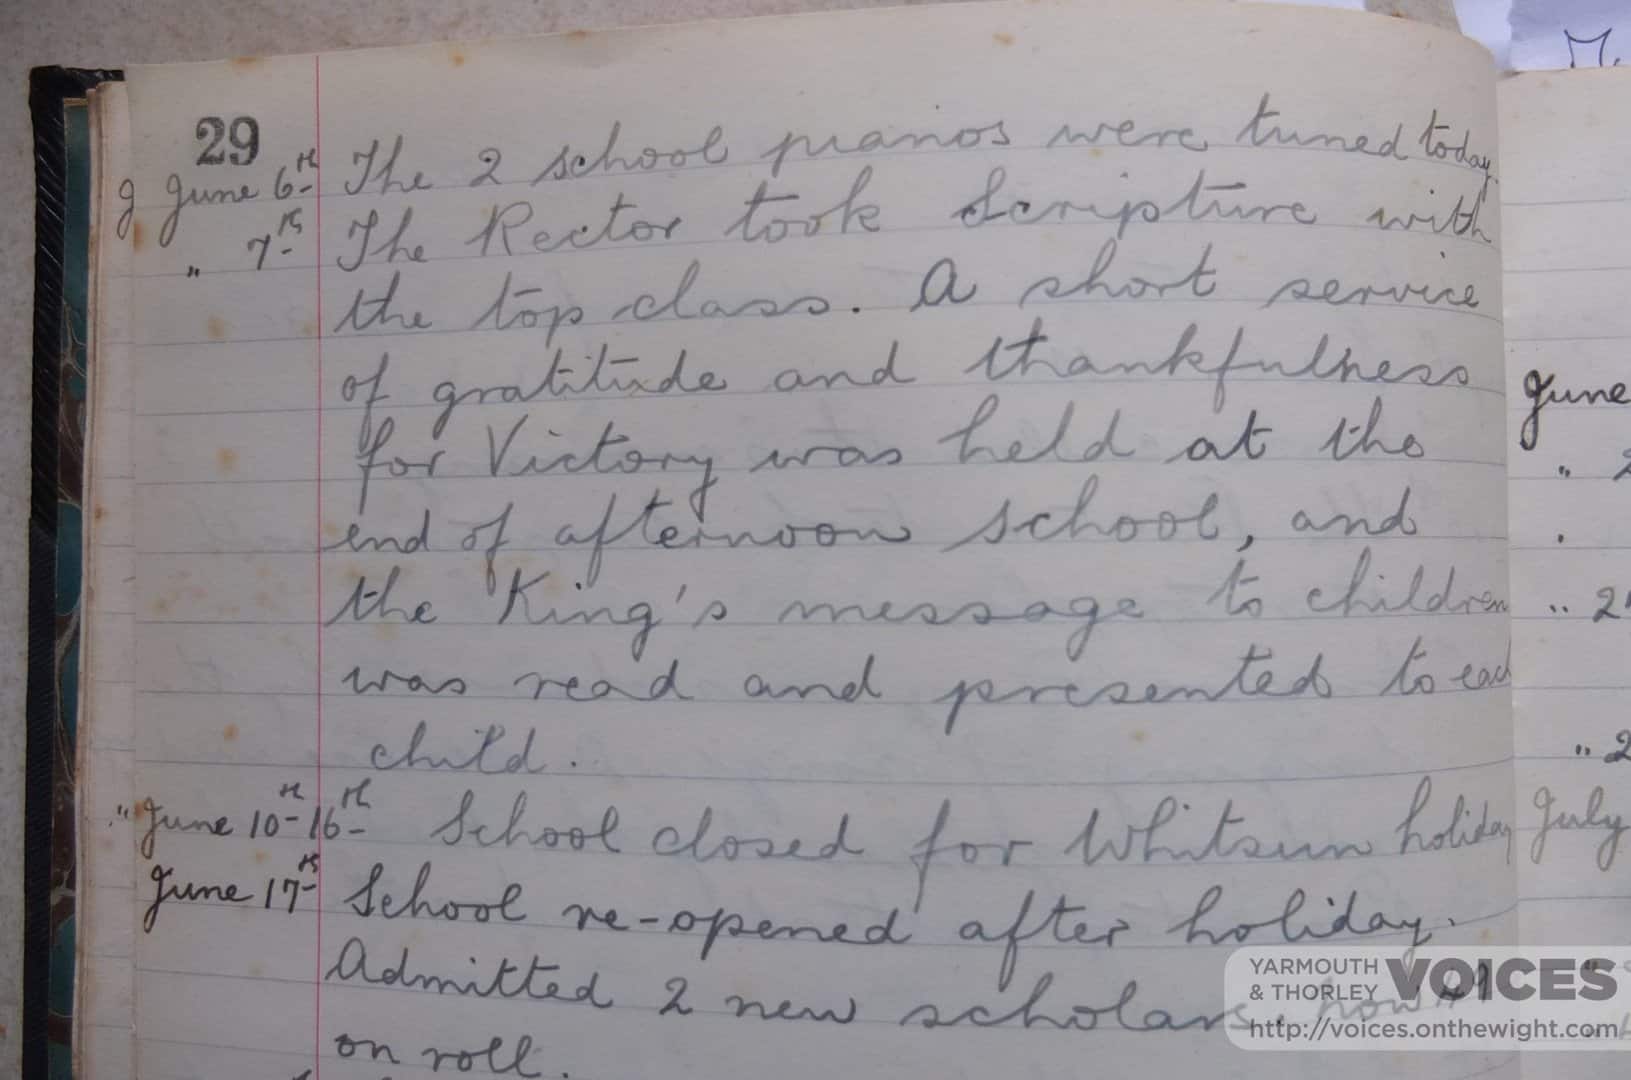 29
g June 6th The 2 school pianos were tuned today.
" 7th The Rector took Scripture with
the top class. A short service
of gratitude and thankfulness
for Victory was held at the
end of afternoon school, and
the King's message to children
was read and presented to each
child.
" June 10th-16th School closed for Whitsun holiday
June 17th School re-opened after holiday.
Admitted 2 new scholars. now 49
on roll.
June
" 2
"
" 2
" 2
July
YARMOUTH & THORLEY VOICES
http://voices.onthewight.com